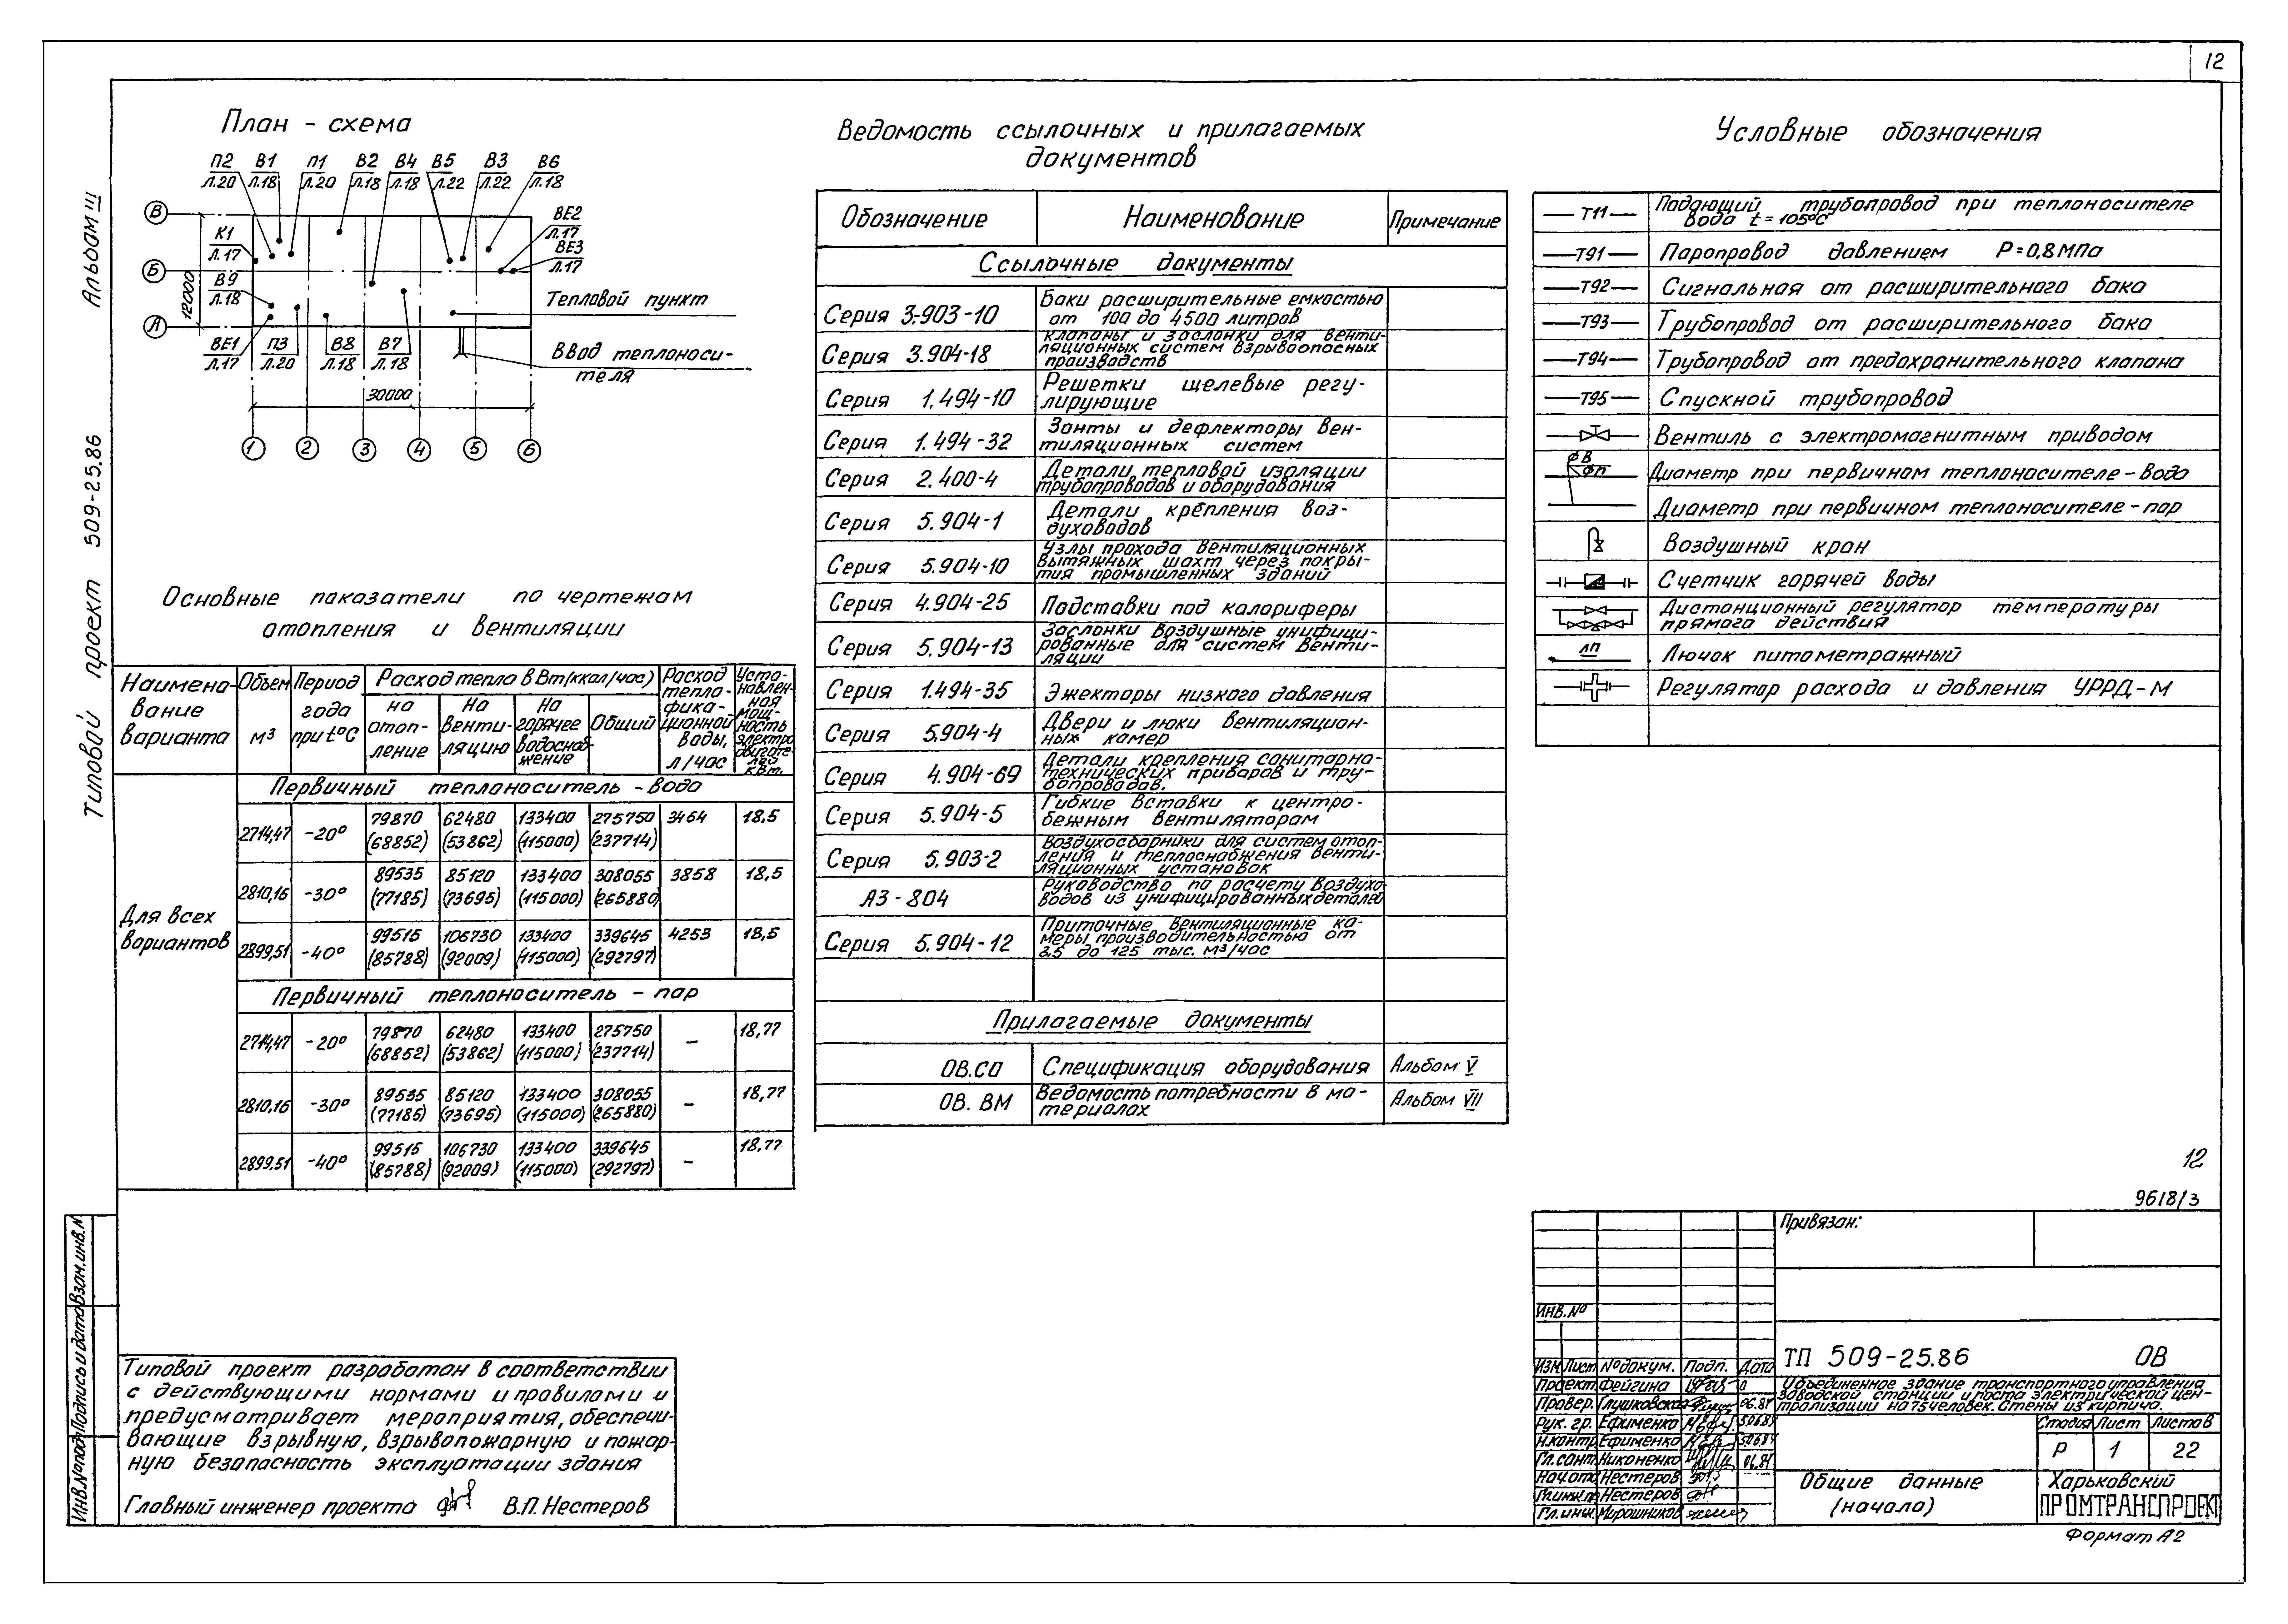 12
Альбом III
Типовой проект 509-25.86
План - схема
П2 В1 П1 В2 В4 В5 В3 В6
Л.20 Л.18 Л.20 Л.18 Л.18 Л.22 Л.22 Л.18
В
Б
А
12000
К1
Л.17
В9
Л.18
ВЕ2
Л.17
ВЕ3
Л.17
Тепловой пункт
Ввод теплоноси-
теля
ВЕ1 П3 В8 В7
Л.17 Л.20 Л.18 Л.18
30000
1 2 3 4 5 6
Основные показатели по чертежам
отопления и вентиляции
Наимено-
вание
варианта
Объем
м³
Период
года
при t°C
Расход тепла в Вт (ккал/час)
на
отоп-
ление
На
венти-
ляцию
На
горячее
водоснаб-
жение
Общий
Расход
тепло-
фика-
ционной
воды,
л/час
Уста-
новлен-
ная
мощ-
ность
электро
двигате-
лей
кВт.
Для всех
вариантов
Первичный теплоноситель - вода
2714,47 -20° 79870 62480 133400 275750 3454 18.5
(68852) (53862) (115000) (237714)
2810,16 -30° 89535 85120 133400 308055 3858 18,5
(77185) (73695) (115000) (265880)
2899,51 -40° 99515 106730 133400 339645 4253 18,5
(85788) (92009) (115000) (292797)
Первичный теплоноситель - пар
2714,47 -20° 79870 62480 133400 275750 - 18,77
(68852) (53862) (115000) (237714)
2810,16 -30° 89535 85120 133400 308055 - 18,77
(77185) (73695) (115000) (265880)
2899.51 -40° 99515 106730 133400 339645 - 18,77
(85788) (92009) (115000) (292797)
Ведомость ссылочных и прилагаемых
документов
Обозначение Наименование Примечание
Ссылочные документы
Серия 3-903-10 Баки расширительные емкостью
от 100 до 4500 литров
Серия 3.904-18 Клапаны и заслонки для венти-
ляционных систем взрывоопасных
производств
Серия 1.494-10 Решетки щелевые регу-
лирующие
Серия 1.494-32 Зонты и дефлекторы вен-
тиляционных систем
Серия 2.400-4 Детали тепловой изоляции
трубопроводов и оборудования
Серия 5.904-1 Детали крепления воз-
духоводов
Серия 5.904-10 Узлы прохода вентиляционных
вытяжных шахт через покры-
тия промышленных зданий
Серия 4.904-25 Подставки под калориферы
Серия 5.904-13 Заслонки воздушные унифици-
рованные для систем венти-
ляции
Серия 1.494-35 Эжекторы низкого давления
Серия 5.904-4 Двери и люки вентиляцион-
ных камер
Серия 4.904-69 Детали крепления санитарно-
технических приборов и тру-
бопроводов.
Серия 5.904-5 Гибкие вставки к центро-
бежным вентиляторам
Серия 5.903-2 Воздухосборники для систем отоп-
ления и теплоснабжения венти-
ляционных установок
А3-804 Руководство по расчету воздухо-
водов из унифицированных деталей
Серия 5.904-12 Приточные вентиляционные ка-
меры производительностью от
3.5 до 125 тыс. м³/час
Прилагаемые документы
ОВ.СО Спецификация оборудования Альбом V
ОВ. ВМ Ведомость потребности в ма- Альбом VII
териалах
Условные обозначения
Т11 Подающий трубопровод при теплоносителе
вода t=105°C
Т91 Паропровод давлением Р=0,8МПа
Т92 Сигнальная от расширительного бака
Т93 Трубопровод от расширительного бака
Т94 Трубопровод от предохранительного клапана
Т95 Спускной трубопровод
Вентиль с электромагнитным приводом
ФВ
ФП Диаметр при первичном теплоносителе-вода
Диаметр при первичном теплоносителе-пар
Воздушный кран
Счетчик горячей воды
Дистанционный регулятор температуры
прямого действия
ЛП Лючок питометражный
Регулятор расхода и давления УРРД-М
Типовой проект разработан в соответствии
с действующими нормами и правилами и
предусматривает мероприятия, обеспечи-
вающие взрывную, взрывопожарную и пожар-
ную безопасность эксплуатации здания
Главный инженер проекта В.П. Нестеров
Инв.№подл Подпись и дата Взам.инв.№
12
9618/3
Привязан:
Инв.№
Изм Лист №докум. Подп. Дата
Проект. Фейгина
Провер. Глушковская 06.84
Рук. гр. Ефименко
Н.контр Ефименко
Гл.сант Никоненко 06.84
Нач.отд Нестеров
Гл.инж.пр Нестеров
Гл.инж. Мирошников
ТП 509-25.86 ОВ
Объединенное здание транспортного управления
заводской станции и поста электрической цен-
трализации на 75 человек. Стены из кирпича.
Стадия Лист Листов
Р 1 22
Общие данные
(начало)
Харьковский
ПРОМТРАНСПРОЕКТ
Формат А2